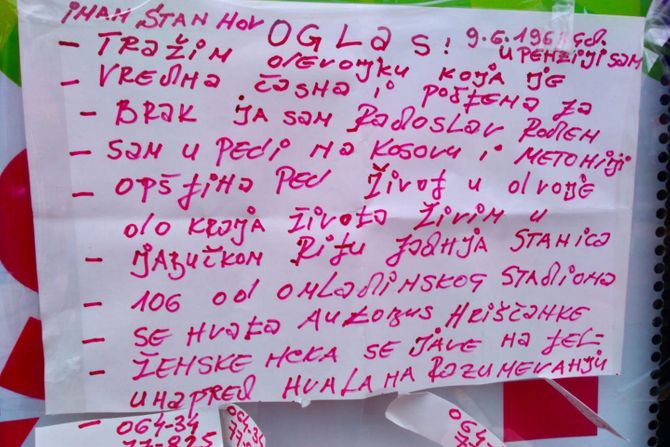 IMAM STAN NOV OGLAS! 9.6.1961 god.
U PENZIJI SAM
- TRAŽIM DEVOJKU KOJA JE
- VREDNA ČASNA i POŠTENA ZA
- BRAK JA SAM RADOSLAV ROĐEN
- SAM U PEĆI NA KOSOVU i METOHIJI
- OPŠTINA PEĆ ŽIVOT U DVOJE
DO KRAJA ŽIVOTA ŽIVIM U
- JAJUČKOM RITU ZADNJA STANICA
- 106 OD OMLADINSKOG STADIONA
- SE HVATA AUTOBUS HRIŠĆANKE
- ŽENSKE NEKA SE JAVE NA TEL-
UNAPRED HVALA NA RAZUMEVANJU
- 064-34
77-825
064-34
77
064
77